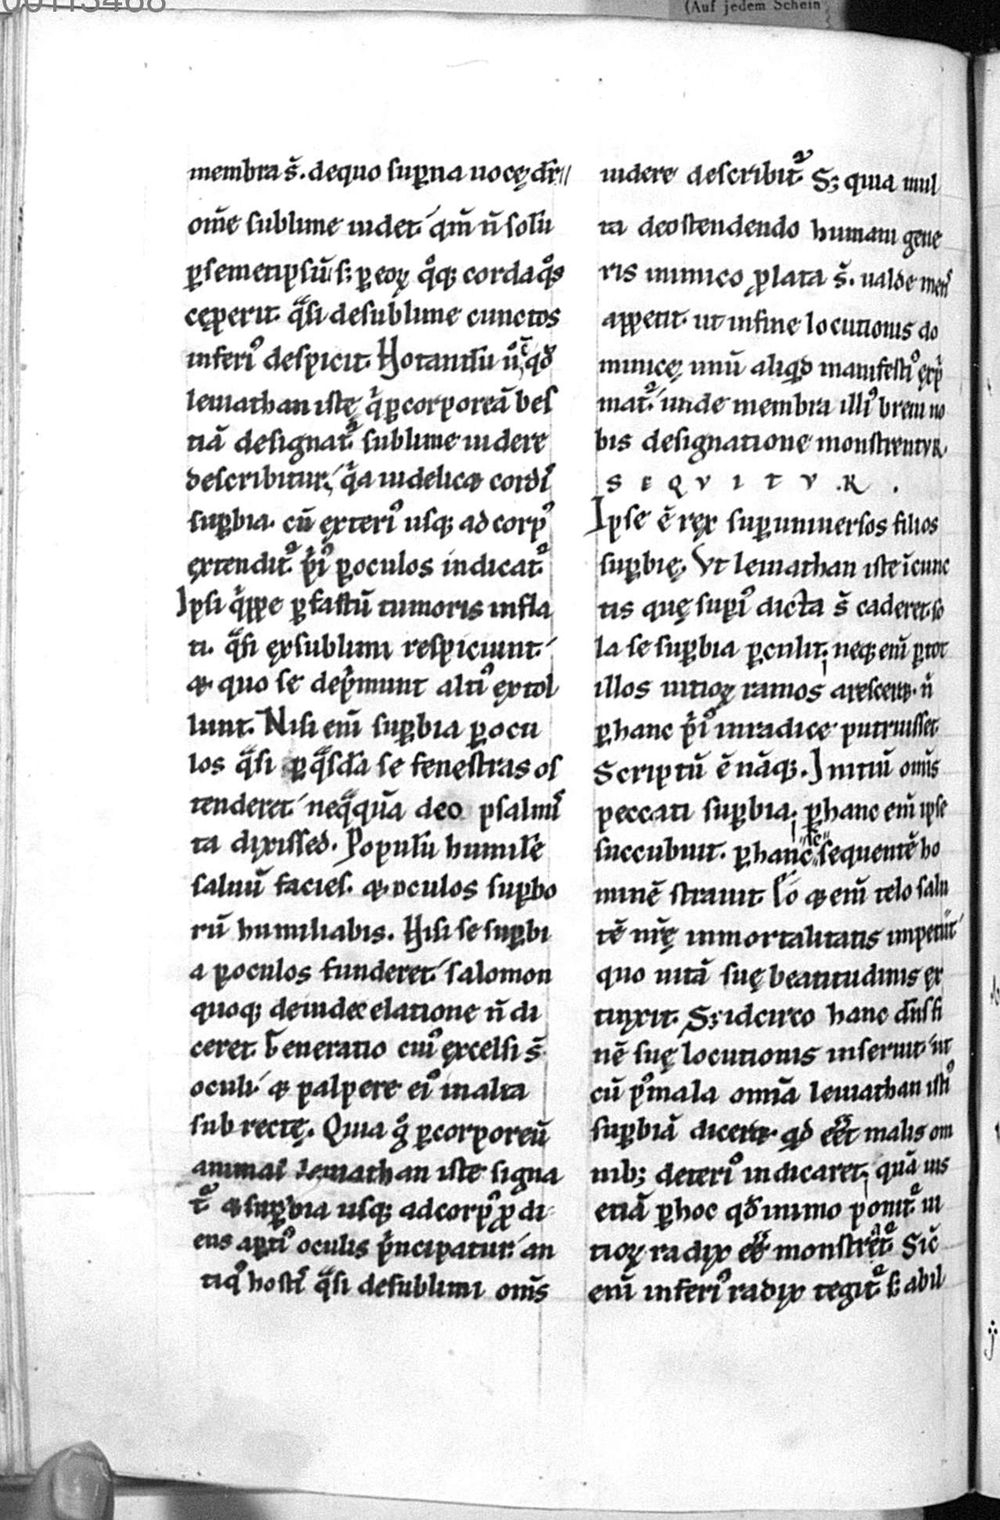 00113468
(Auf jedem Schein
membra s̄. dequo sup̱na uocę dr̄
om̄e sublime uidet. qm̄ n̄ solū
p̱semetip̱sū s; p̱ eoꝝ q̊q; corda q̊s
cęperit. q̄si desublime cunctos
inferiꝰ despicit. Notandū ū qđ
leuiathan istę q̇ p̱corporeā bes
tiā designat᷑ sublime uidere
describitur, q̇a uidelicę cordꝭ
sup̱bia. cū ęxteriꝰ usq; ad corpꝰ
ęxtendit᷑. p̱iꝰ p̱oculos indicat᷑
Ipsi q̇ppe p̱ fastū tumoris infla
ti. q̄si ęxsublimi respiciunt.
& quo se deṗmunt altiꝰ ęxtol
lunt. Nisi eni̅ sup̱bia p̱ocu
los q̄si p̱ q̄sdā se fenestras os
tenderet. neq̄quā deo psalmꝭ
ta dixissed. Populū humilē
saluū facies. & oculos sup̱bo
rū humiliabis. Nisi se sup̱bi
a p̱oculos funderet. salomon
quoq; deiudee elatione n̄ di
ceret. Generatio cuiꝰ ęxcelsi s̄
oculi. & palpere eiꝰ inalta
subrectę. Quia g̊ p̱corporeū
animal leuiathan iste signa
t᷑ & sup̱bia usq; adcorpꝰ p̱ di
ens ap̱tiꝰ oculis ṗncipatur. an
tiqꝰ hostꝭ q̄si desublimi om̄s
uidere describit᷑ S; quia mul
ta deostendendo humani gene
ris inimico p̱lata s̄. ualde men̄
appetit. ut infine locutionis do
minicę unū aliqd manifestiꝰ ęxṗ
mat᷑. unde membra illiꝰ breui no
bis designatione monstrentur.
SEQVITVR.
Ipse ē ręx sup̱uniuersos filios
sup̱bię. Vt leuiathan iste icunc
tis quę sup̱iꝰ dicta s̄ caderet. so
la se sup̱bia p̱culit. neq; eni̅ p̱tot
illos uitioꝝ ramos arescere. n̄
p̱hanc p̱iꝰ inradice putruisset.
Scriptū ē nāq;. Initiū om̄is
peccati sup̱bia. p̱hanc eni̅ ipse
succubuit. p̱hanc sequentē ho
minē strauit. Eo & eni̅ telo salu
tē nr̄ę inmortalitatis impetiit
quo uitā suę beatitudinis ęx
tinxit. S; idcirco hanc dn̄s fi
nē suę locutionis inseruit. ut
cū p̱mala omīa leuiathan istiꝰ
sup̱biā diceret. qd eēt malis om
nib; deteriꝰ indicaret. quā uis
etiā p̱hoc qđ inimo ponit᷑ ui
tioꝝ radix eē monstret᷑. Sic̄
eni̅ inferiꝰ radix tegit᷑ s; abil